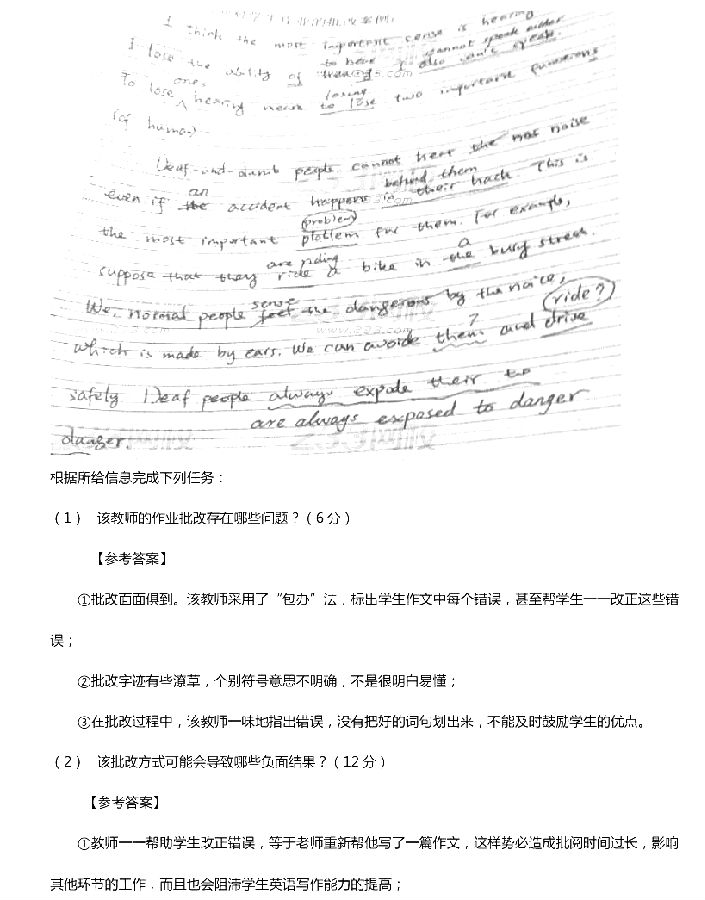 I think the most important sense is hearing
cannot speak either
I lose the ability of hearing. I also can't speak.
to hear
ones losing
To lose ∧ hearing mean to lose two important functions
(of human)
Deaf-and-dumb people cannot hear the noise
an behind them
even if the accident happens in their back. This is
(problem)
the most important ploblem for them. For example,
are riding a
suppose that they ride a bike in the busy street.
sense
We, normal people feel the dangerous by the noice,
? (ride?)
which is made by cars. We can avoide them and drive
safely. Deaf people always expode their to
are always exposed to danger
danger.
根据所给信息完成下列任务：
（1） 该教师的作业批改存在哪些问题？（6分）
【参考答案】
①批改面面俱到。该教师采用了“包办”法，标出学生作文中每个错误，甚至帮学生一一改正这些错
误；
②批改字迹有些潦草，个别符号意思不明确，不是很明白易懂；
③在批改过程中，该教师一味地指出错误，没有把好的词句划出来，不能及时鼓励学生的优点。
（2） 该批改方式可能会导致哪些负面结果？（12分）
【参考答案】
①教师一一帮助学生改正错误，等于老师重新帮他写了一篇作文，这样势必造成批阅时间过长，影响
其他环节的工作，而且也会阻滞学生英语写作能力的提高；